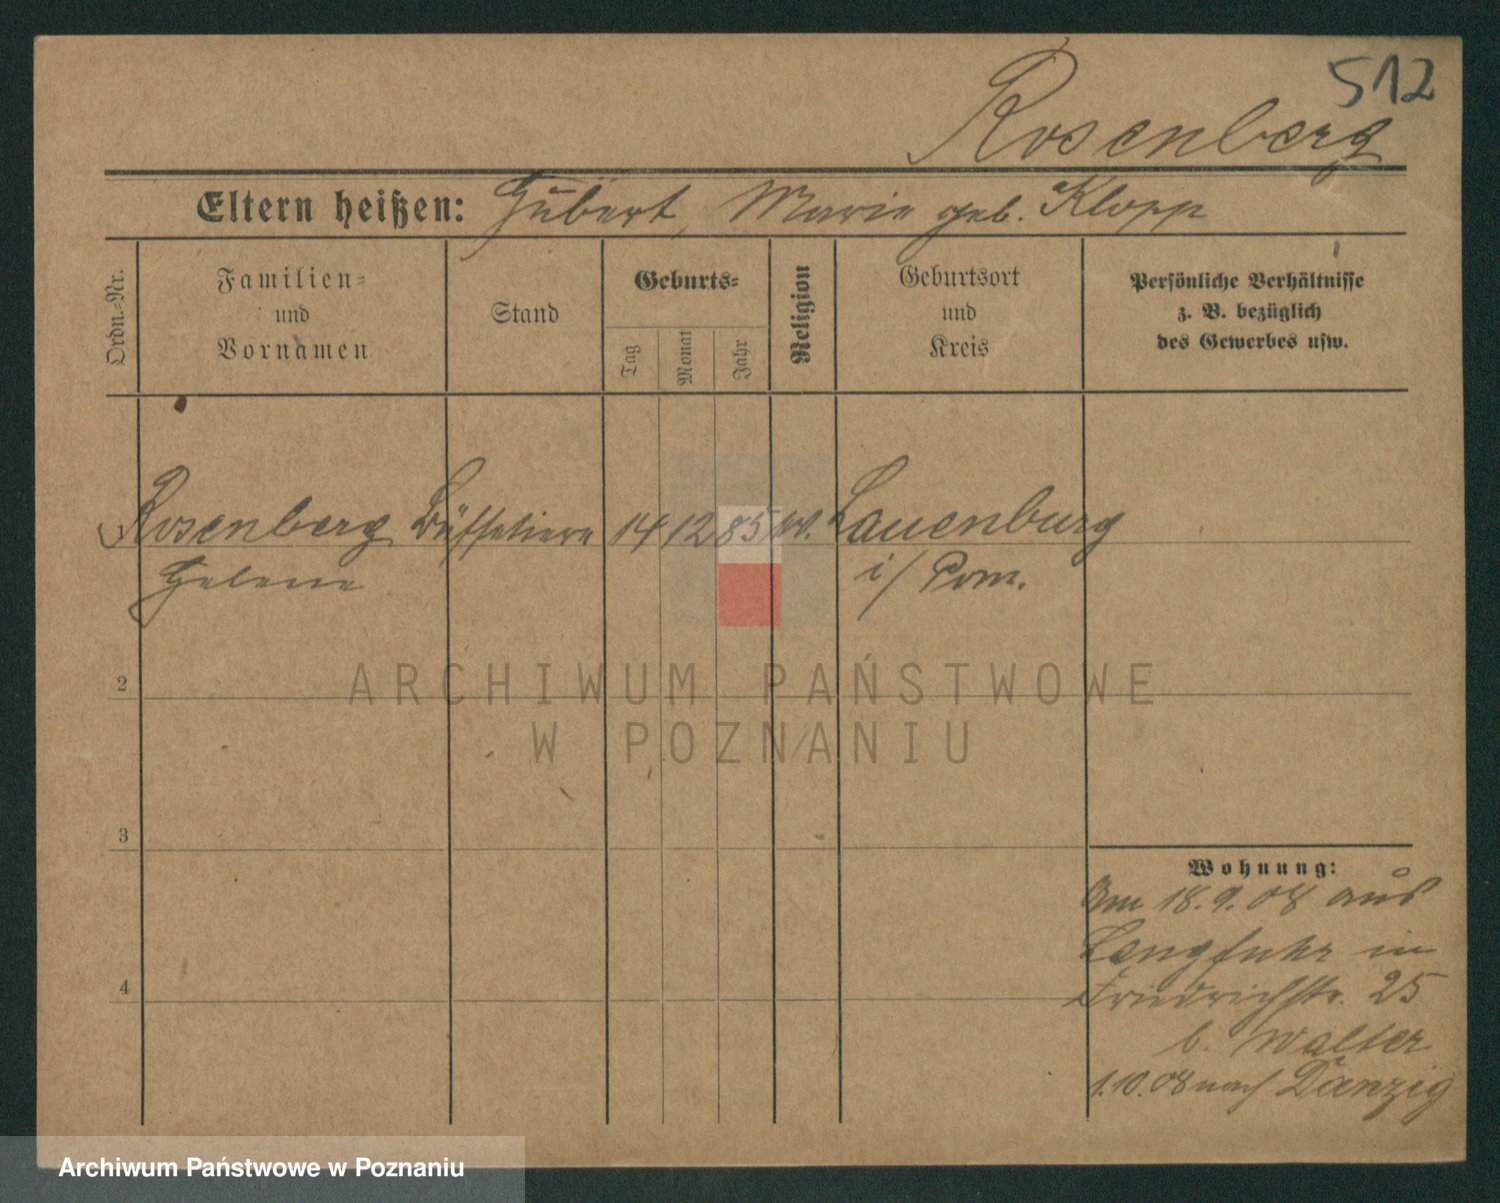 512
Rosenberg
Eltern heißen: Hubert, Marie geb. Klopp
Ordn.-Nr.
Familien-
und
Vornamen
Stand
Geburts-
Tag
Monat
Jahr
Religion
Geburtsort
und
Kreis
Persönliche Verhältnisse
z. B. bezüglich
des Gewerbes usw.
Rosenberg Büffetiere 14 12 85 Lauenburg
Helene i/ Pom.
2
3
4
Wohnung:
Am 18.9.08 aus
Langfuhr in
Friedrichstr. 25
b. Walter
1.10.08 nach Danzig
ARCHIWUM PAŃSTWOWE
W POZNANIU
Archiwum Państwowe w Poznaniu